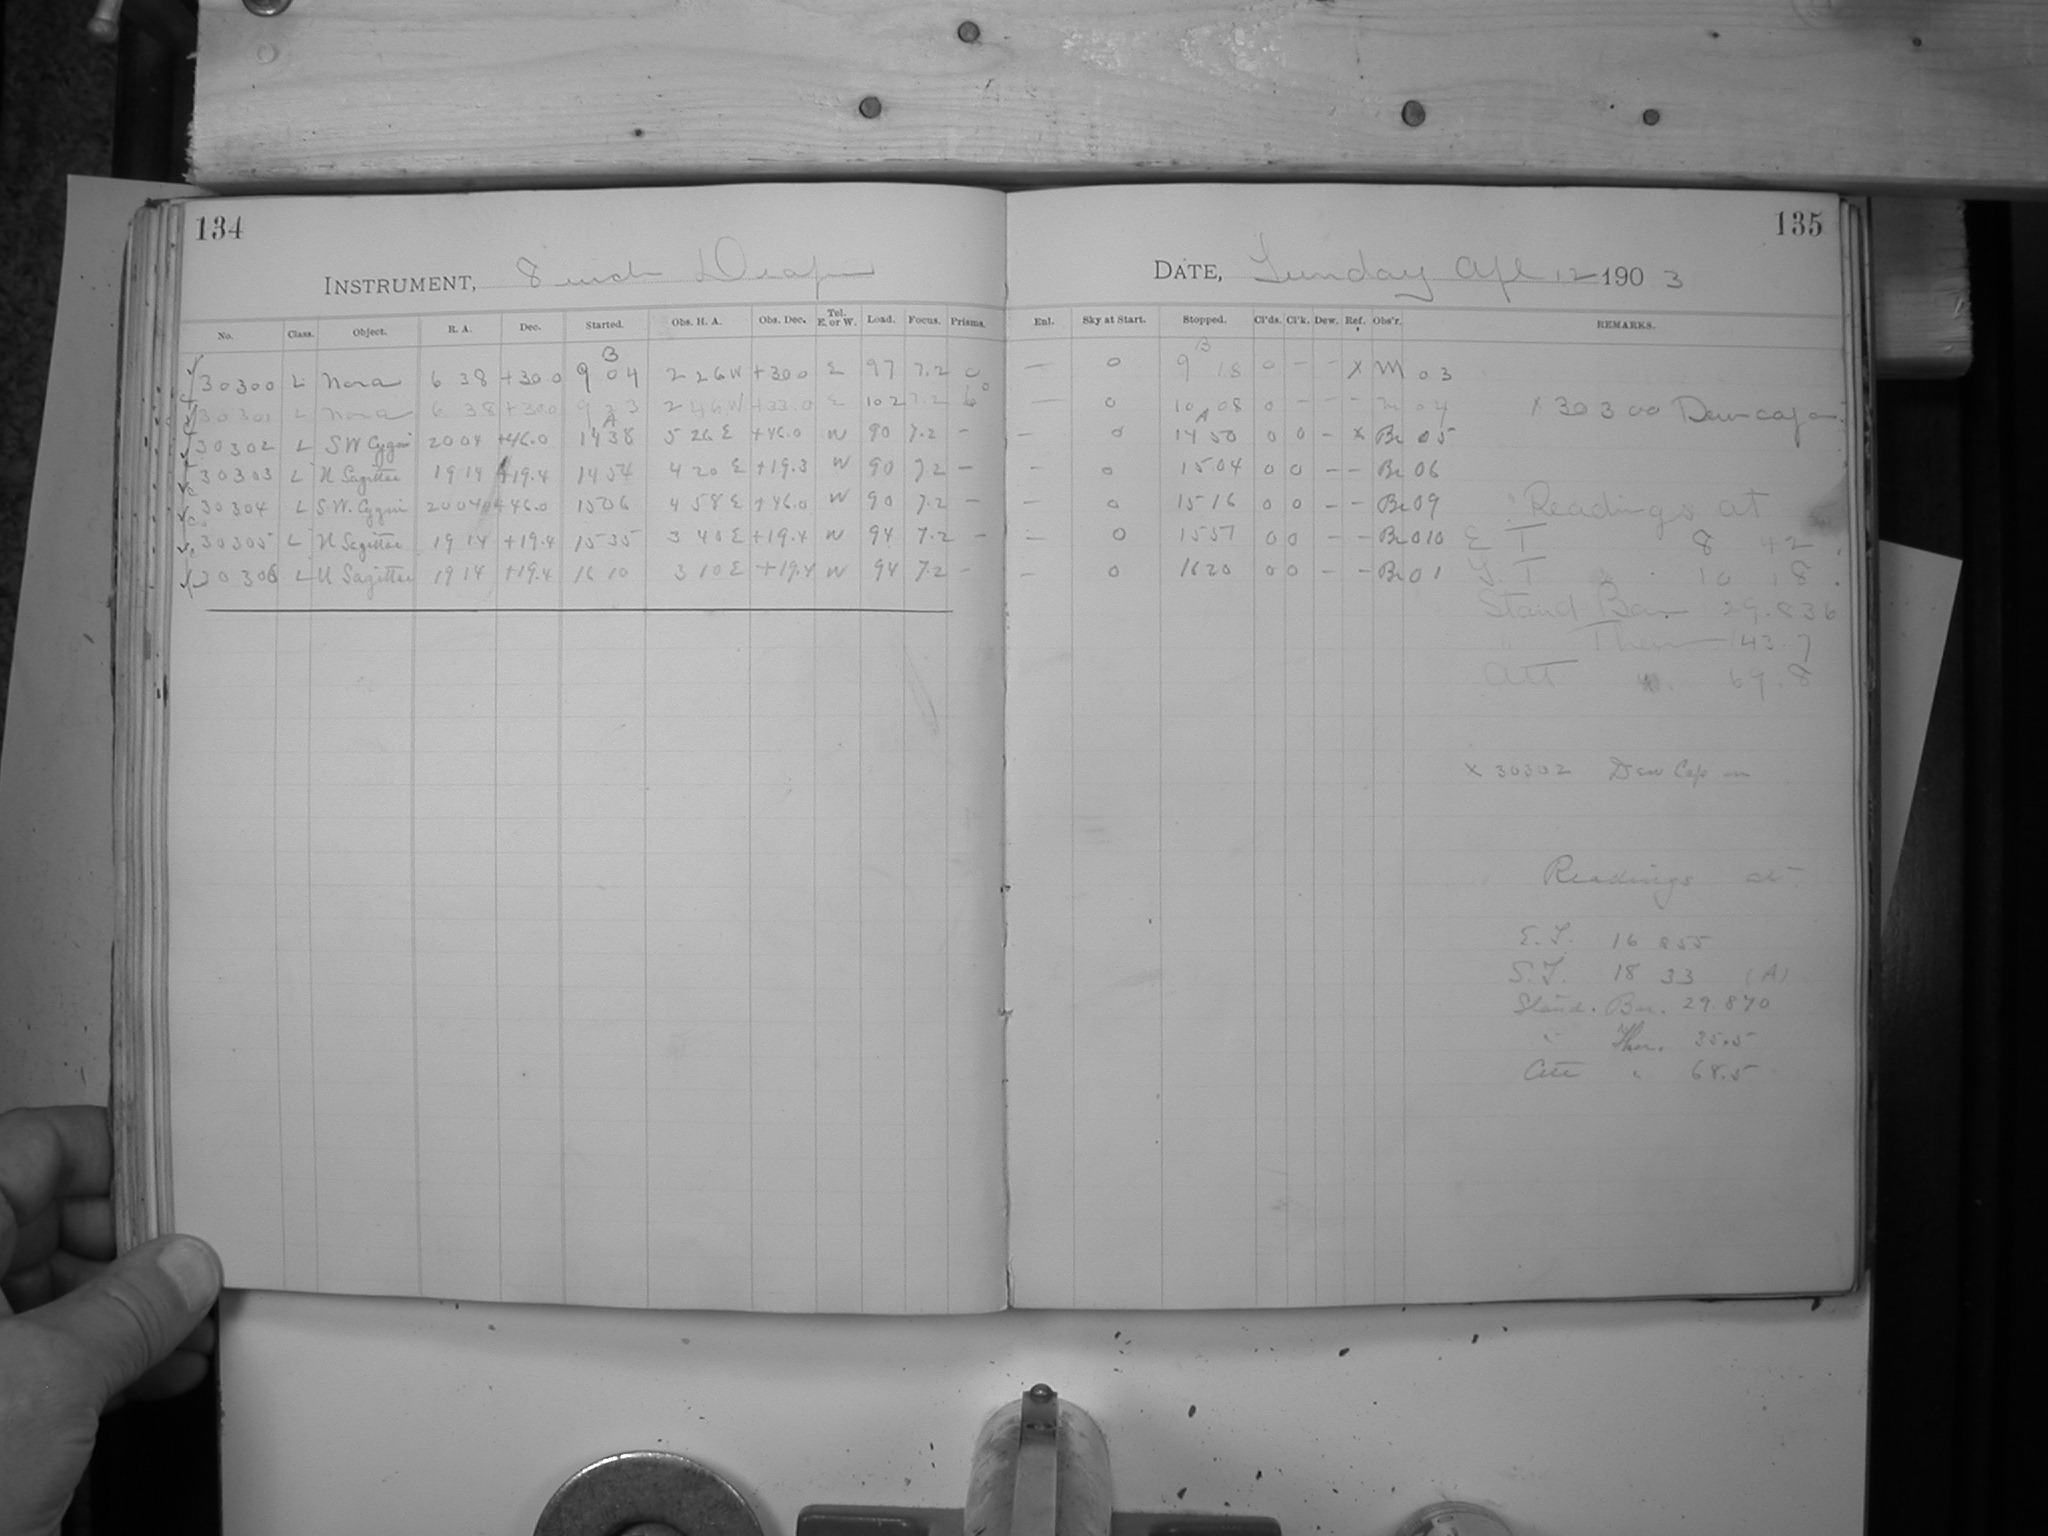 134
INSTRUMENT, 8 inch Draper
No. Class. Object. R. A. Dec. Started. Obs. H. A. Obs. Dec. Tel. E. or W. Load. Focus. Prisms.
B
30300 L Nova 6 38 +30.0 9 04 2 26 W +30.0 E 97 7.2 0
30301 L Nova 6 38 +30.0 9 23 2 46 W +33.0 E 102 7.2 6°
A
30302 L SW Cygni 20 04 +46.0 14 38 5 26 E +46.0 W 90 7.2 –
30303 L U Sagittae 19 14 +19.4 14 54 4 20 E +19.3 W 90 7.2 –
30304 L S.W. Cygni 20 04 +46.0 15 06 4 58 E +46.0 W 90 7.2 –
30305 L U Sagittae 19 14 +19.4 15 35 3 40 E +19.4 W 94 7.2 –
30306 L U Sagittae 19 14 +19.4 16 10 3 10 E +19.4 W 94 7.2 –
135
DATE, Sunday Apl 12 1903
Enl. Sky at Start. Stopped. Cl'ds. Cl'k. Dew. Ref. Obs'r. REMARKS.
B
– 0 9 18 0 – – x M 03
– 0 10 08 0 – – – M 04 x 30300 Dew cap on
A
– 0 14 50 0 0 – x Br 05
– 0 15 04 0 0 – – Br 06
– 0 15 16 0 0 – – Br 09
– 0 15 57 0 0 – – Br 010
– 0 16 20 0 0 – – Br 01
Readings at
E T 8 42
S. T 10 18
Stand Bar 29.836
" Ther 43.7
Att ". 69.8
x 30302 Dew Cap on
Readings at
E.T. 16 55
S.T. 18 33 (A)
Stand. Bar. 29.870
" Ther. 35.5
Att " 68.5